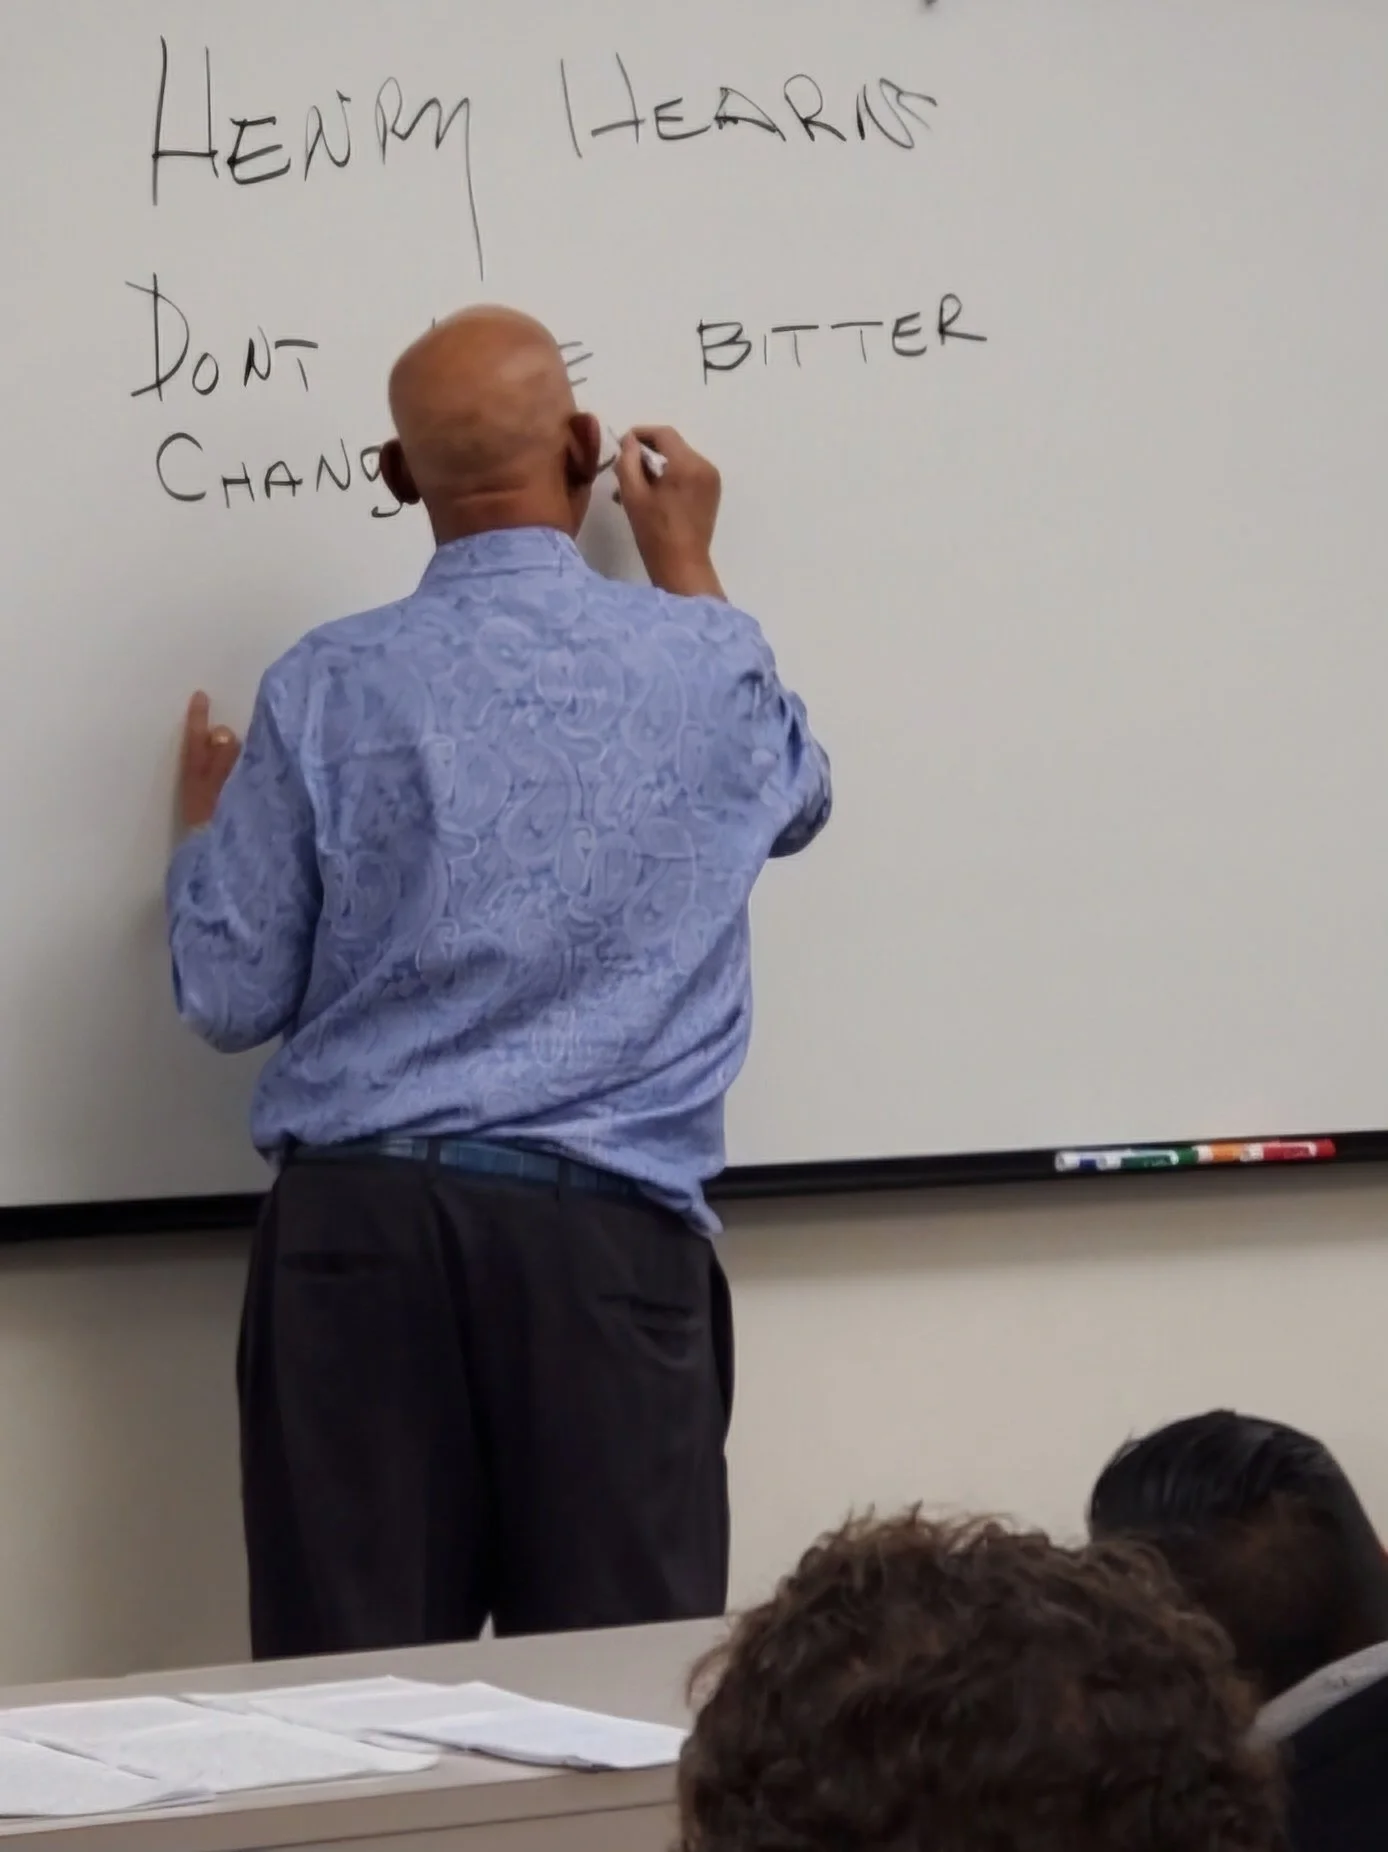 HENRY HEARNS
DONT BITTER
CHANG